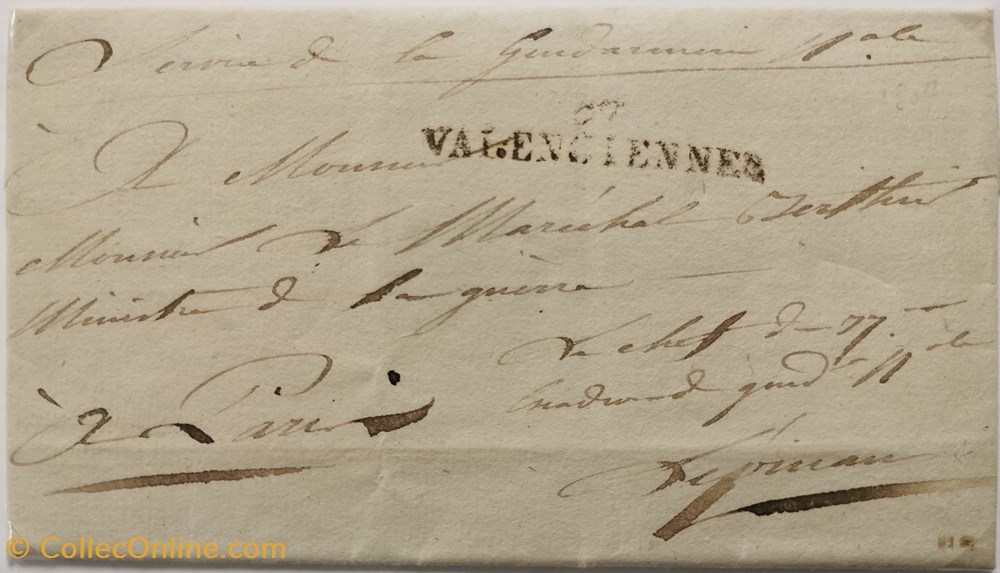 Service de la Gendarmerie Nale
VALENCIENNES
À Monsieur
Monsieur Le Maréchal Berthier
Ministre de la guèrre
Le chef du 77.
Escadron de gend Nale
à Paris
© CollecOnline.com